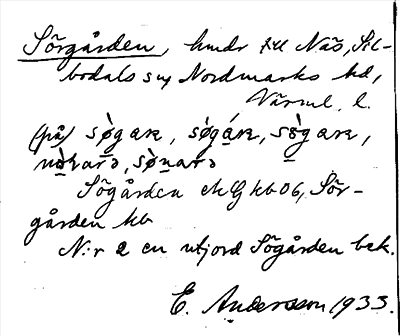 Sörgården, hmdr till Näs, Sil-
bodals sn, Nordmarks hd,
Värml. l.
(på) sø̀gaɽɛ, søgáɽɛ, sø̀gaɽɛ,
Sögården ek G kb 06, Sör-
gården kb
N:r 2 en utjord Sögården bek.
E. Andersson 1933.